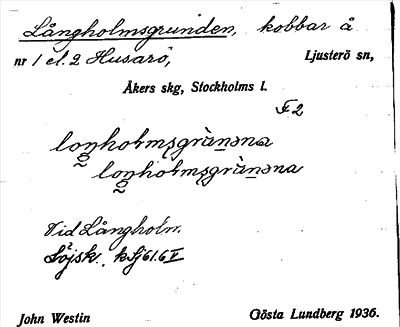 Långholmsgrunden, kobbar å
nr 1 el. 2 Husarö, Ljusterö sn,
Åkers skg, Stockholms l.
F2
loŋholmsgrànəna
loŋholmsgrànəna
Vid Långholm.
Söjsk. kSj61.6V
John Westin Gösta Lundberg 1936.